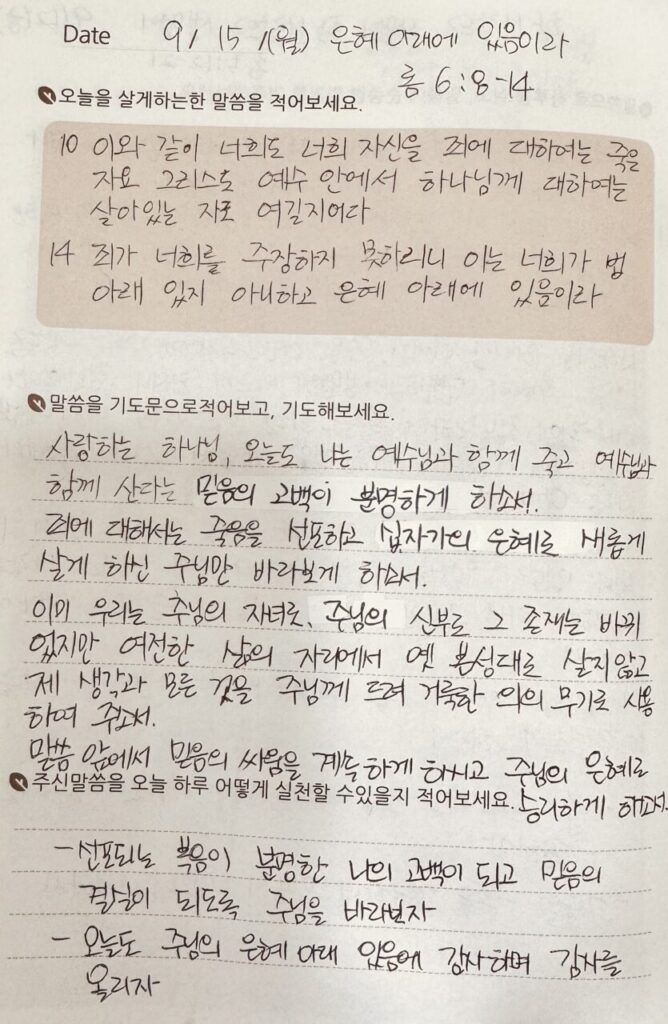 Date 9/ 15 /(월) 은혜 아래에 있음이라
롬 6:8-14
오늘을 살게하는한 말씀을 적어보세요.
10 이와 같이 너희도 너희 자신을 죄에 대하여는 죽은
자요 그리스도 예수 안에서 하나님께 대하여는
살아있는 자로 여길지어다
14 죄가 너희를 주장하지 못하리니 이는 너희가 법
아래 있지 아니하고 은혜 아래에 있음이라
말씀을 기도문으로적어보고, 기도해보세요.
사랑하는 하나님, 오늘도 나는 예수님과 함께 죽고 예수님과
함께 산다는 믿음의 고백이 분명하게 하소서.
죄에 대해서는 죽음을 선포하고 십자가의 은혜로 새롭게
살게 하신 주님만 바라보게 하소서.
이미 우리는 주님의 자녀로, 주님의 신부로 그 존재는 바뀌
었지만 여전한 삶의 자리에서 옛 본성대로 살지않고
제 생각과 모든 것을 주님께 드려 거룩한 의의 무기로 사용
하여 주소서.
말씀 앞에서 믿음의 싸움을 계속하게 하시고 주님의 은혜로
승리하게 하소서.
주신말씀을 오늘 하루 어떻게 실천할 수있을지 적어보세요.
- 선포되는 복음이 분명한 나의 고백이 되고 믿음의
결실이 되도록 주님을 바라보자
- 오늘도 주님의 은혜 아래 있음에 감사하며 감사를
올리자